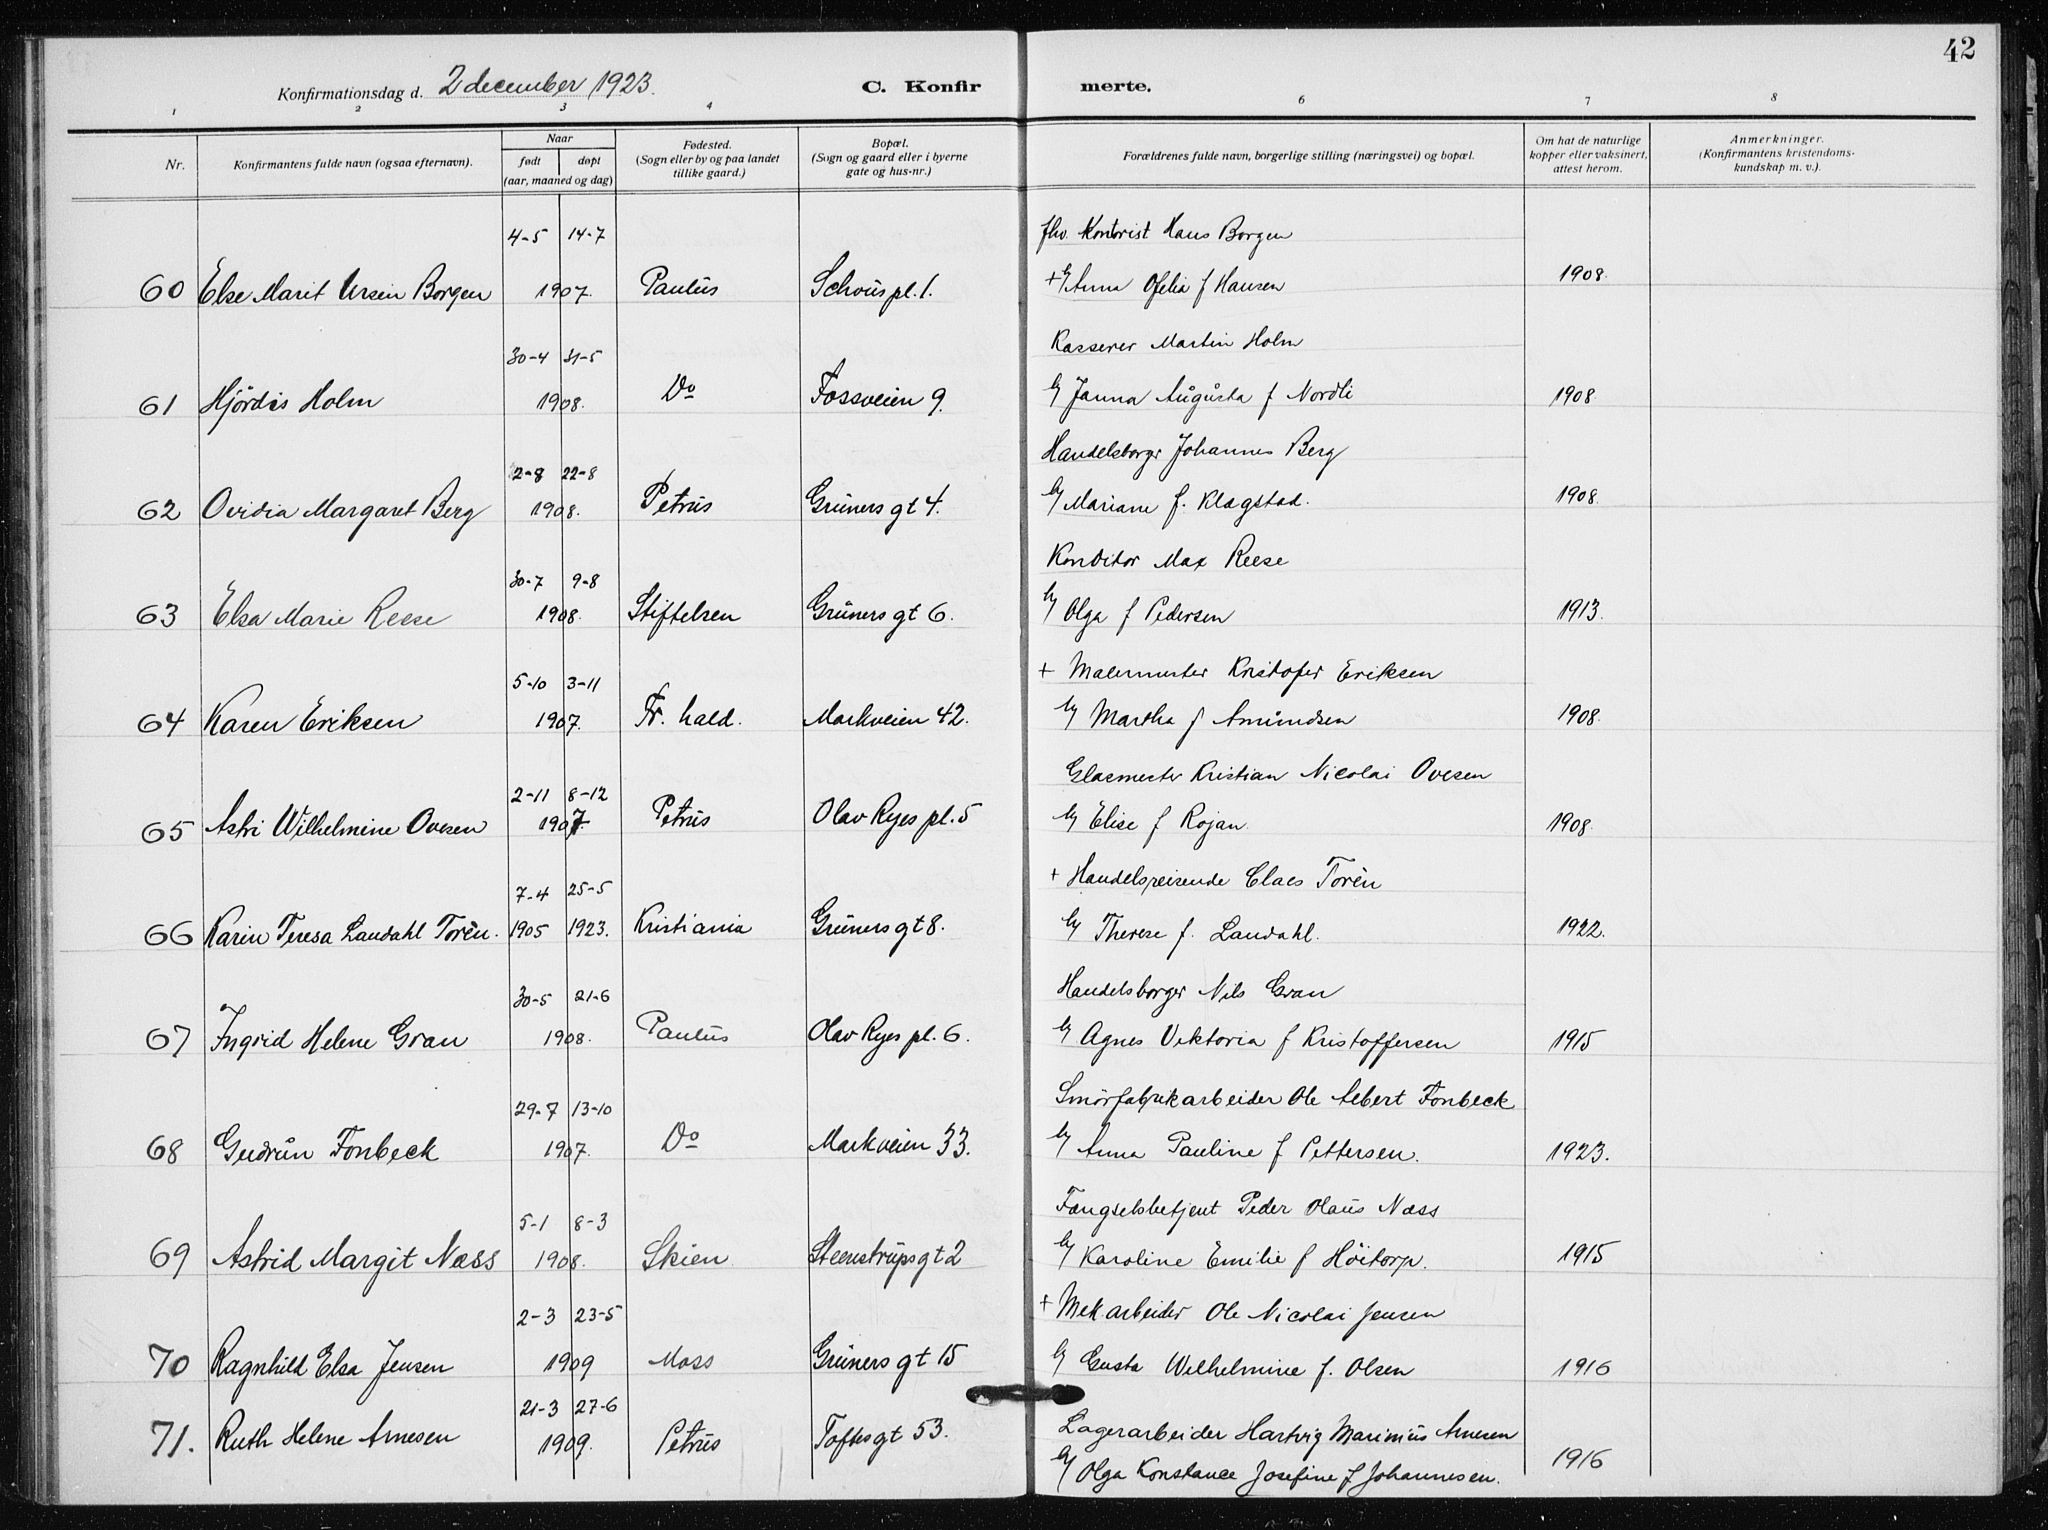 42
Konfirmationsdag d. 2 december 1923.
C. Konfirmerte.
1 2 3 4 6 7 8
Nr. Konfirmantens fulde navn (ogsaa efternavn). Naar født døpt (aar, maaned og dag) Fødested. (Sogn eller by og paa landet tillike gaard.) Bopæl. (Sogn og gaard eller i byerne gate og hus-nr.) Forældrenes fulde navn, borgerlige stilling (næringsvei) og bopæl. Om hat de naturlige kopper eller vaksinert, attest herom. Anmerkninger. (Konfirmantens kristendomskundskap m. v.).
4-5 14-7 fhv. Kontorist Hans Borgen
60 Else Marit Ursin Borgen 1907. Paulus Schous pl. 1. + Anna Ofelia f Hansen 1908.
30-4 31-5 Kasserer Martin Holm
61 Hjördis Holm 1908. Do Fossveien 9. Janna Augusta f Nordli 1908
2-8 22-8 Handelsborger Johannes Berg
62 Ovidia Margaret Berg 1908. Petrus Grüners gt 4. Mariane f. Klagstad. 1908
30-7 9-8 Konditor Max Reese
63 Elsa Marie Reese 1908. Stiftelsen Grüners gt 6. Olga f Pedersen 1913.
5-10 3-11 + Malermester Kristofer Eriksen
64 Karen Eriksen 1907. Fr. hald. Markveien 42. Martha f Amundsen 1908.
2-11 8-12 Glasmester Kristian Nicolai Ovesen
65 Astri Wilhelmine Ovesen 1907. Petrus Olav Ryes pl. 5 Elise f Rojan. 1908.
7-4 25-5 + Handelsreisende Claes Torèn
66 Karin Teresa Landahl Torèn. 1905 1923. Kristiania Grüners gt 8. Therese f. Landahl. 1922.
30-5 21-6 Handelsborger Nils Gran
67 Ingrid Helene Gran 1908. Paulus Olav Ryes pl. 6. Agnes Viktoria f Kristoffersen 1915
29-7 13-10 Smörfabrikarbeider Ole Albert Fonbeck
68 Gudrun Fonbeck 1907. Do Markveien 33. Anna Pauline f Pettersen. 1923.
5-1 8-3 Fængselsbetjent Peder Olaus Næss
69 Astrid Margit Næss 1908. Skien Steenstrups gt 2 Karoline Emilie f Höitorp. 1915
2-3 23-5 + Mek.arbeider Ole Nicolai Jensen
70 Ragnhild Elsa Jensen 1909 Moss Grüners gt 15 Gusta Wilhelmine f. Olsen 1916
21-3 27-6 Lagerarbeider Hartvig Marinius Arnesen
71. Ruth Helene Arnesen 1909. Petrus Toftes gt 53. Olga Konstance Josefine f Johannesen. 1916